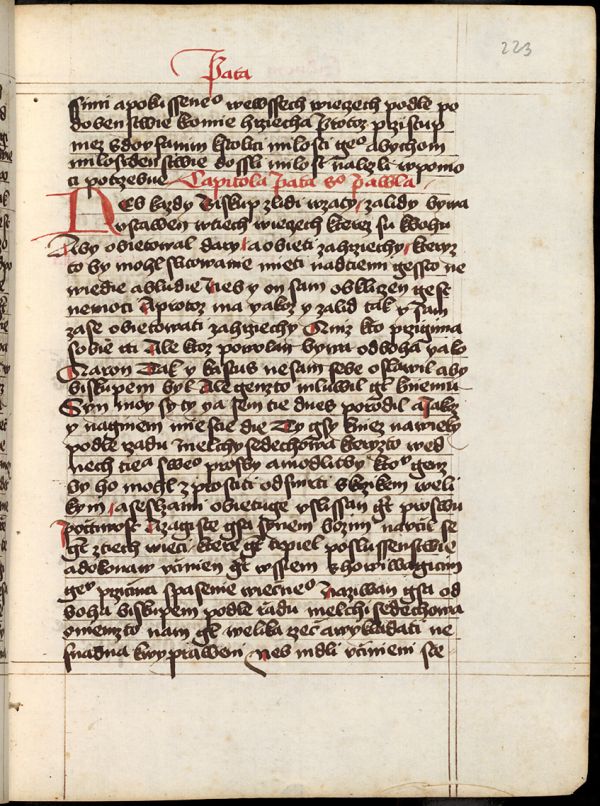 223
Pata
ssimi a pokussene° wewssech wieczech podle po
dobenstwie kromie hrziecha Protoz przistup
mez s dowfanim k stolici milosti ge° abychom
milosrdenstwie dossli milost nalezli w pomo
ci potrzebne Capitola pata s° pawla
Nebs kazdy biskup z lidi wzaty za lidy bywa
vstawen w tiech wiecech kterez su k bohu
Aby obietowal dary a obieti za hrziechy kteryz
to by mohl slitowanie mieti nad tiemi gessto ne
wiedie a bludie Nebs y on sam obkliczen gest
nemoci A protoz ma yakoz y za lid tak y sam
za se obietowati za hrziechy Aniz kto przigima
sobie cti Ale ktoz powolan bywa od boha yako
Aaron Tak y kristus ne sam sebe oslawil aby
biskupem byl Ale genzto mluwil gt k niemu
Syn moy sy ty ya sem tie dnes porodil a Jakz
y na ginem miestie die Ty gsy knez na wieky
podle radu melchysedechowa kteryzto we d
nech tiela swe° prosby a modlitby k to° genz
by ho mohl zprostiti od smrti s krzikem weli
kym a se slzami obietuge vslissan gt pro swu
poctiwost A zagiste gsa synem bozim nauczil se
gt z tiech wieci kterez gt trpiel poslussenstwie
a dokonaw vczinien gt wssiem k howiwagicim
ge° przicina spasenie wiecne° Nazwan gsa od
boha biskupem podle radu melchisedechowa
o niemzto nam gt welika rzec a wykladati ne
snadna k wyprawieni Neb mdli vczinieni ste